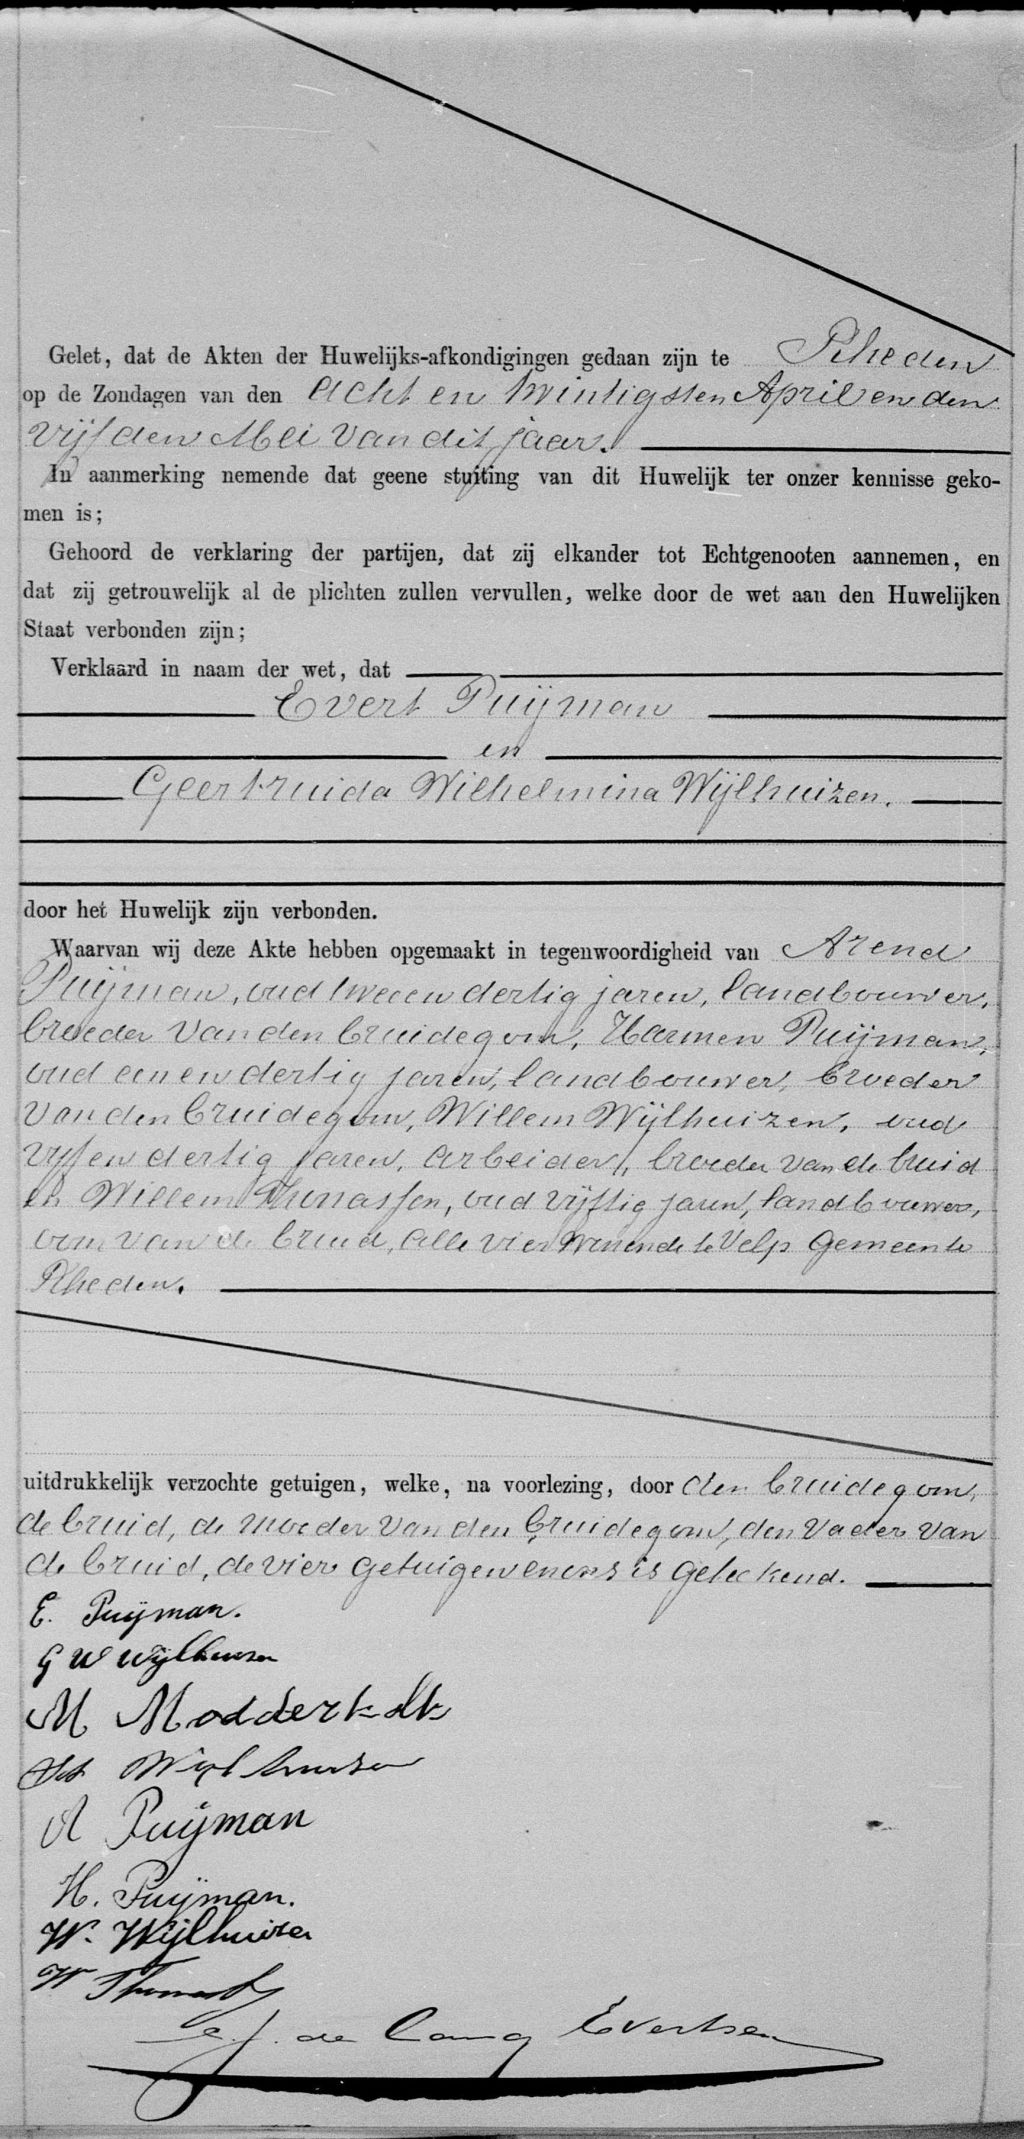 Gelet, dat de Akten der Huwelijks-afkondigingen gedaan zijn te Rheden
op de Zondagen van den acht en twintigsten April en den
vijfden Mei van dit jaar.
In aanmerking nemende dat geene stuiting van dit Huwelijk ter onzer kennisse geko-
men is;
Gehoord de verklaring der partijen, dat zij elkander tot Echtgenooten aannemen, en
dat zij getrouwelijk al de plichten zullen vervullen, welke door de wet aan den Huwelijken
Staat verbonden zijn;
Verklaard in naam der wet, dat
Evert Puijman
en
Geertruida Wilhelmina Wijlhuizen.
door het Huwelijk zijn verbonden.
Waarvan wij deze Akte hebben opgemaakt in tegenwoordigheid van Arend
Puijman, oud twee en dertig jaren, landbouwer,
broeder van den bruidegom, Harmen Puijman,
oud een en dertig jaren, landbouwer, broeder
van den bruidegom, Willem Wijlhuizen, oud
vijf en dertig jaren, arbeider, broeder van de bruid
en Willem oud vijftig jaren, landbouwer,
oom van de bruid, alle vier wonende te Velp Gemeente
Rheden.
uitdrukkelijk verzochte getuigen, welke, na voorlezing, door den bruidegom,
de bruid, de moeder van den bruidegom, den vader van
de bruid, de vier getuigen en ons is geteekend.
E. Puijman.
G W Wijlhuizen
M Modderkolk
Wijlhuizen
A Puijman
H. Puijman.
W. Wijlhuizen
W
de Evertsen